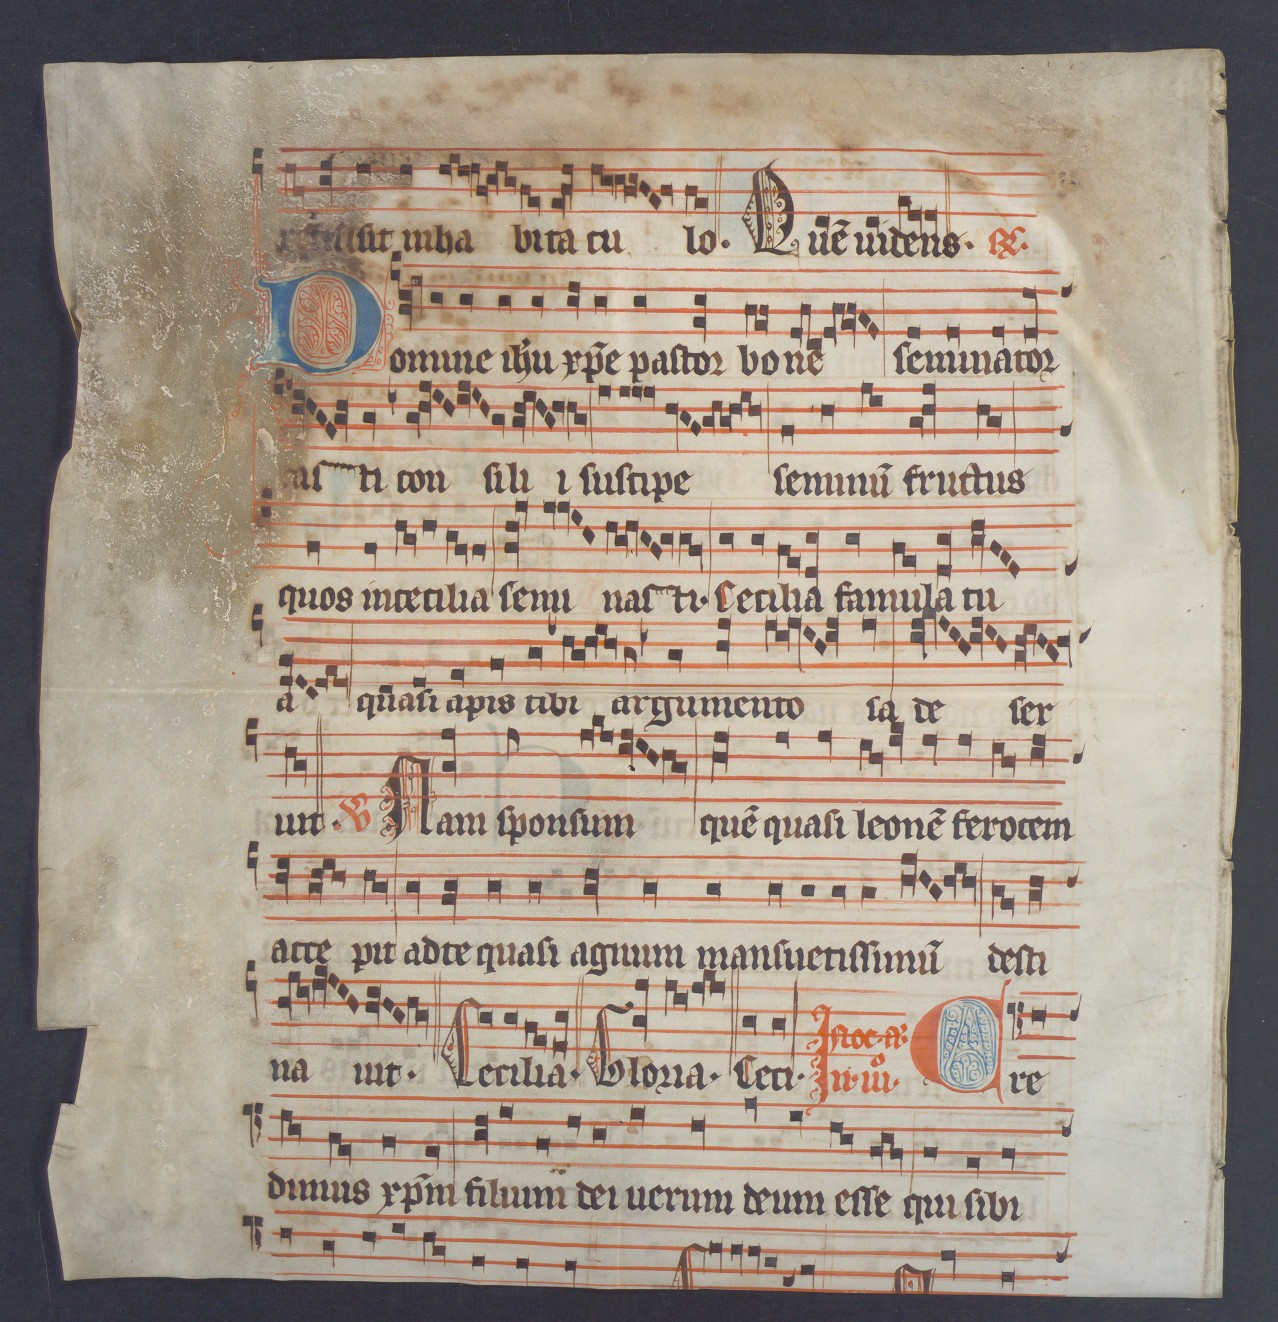 inha bita cu lo. Quē uidens. ꝶ.
Domine ihū xp̄e pastor bone seminator
cas ti con sili i suscipe seminū fructus
quos in cecilia semi nas ti. Cecilia famula tu
a quasi apis tibi argumento sa de ser
uit. ℣ Nam sponsum quē quasi leonē ferocem
acce pit ad te quasi agnum mansuetissimū desti
na uit. Cecilia. Gloria. Ceci. In iiiº. Cre
dimus xp̄m filium dei uerum deum esse qui sibi